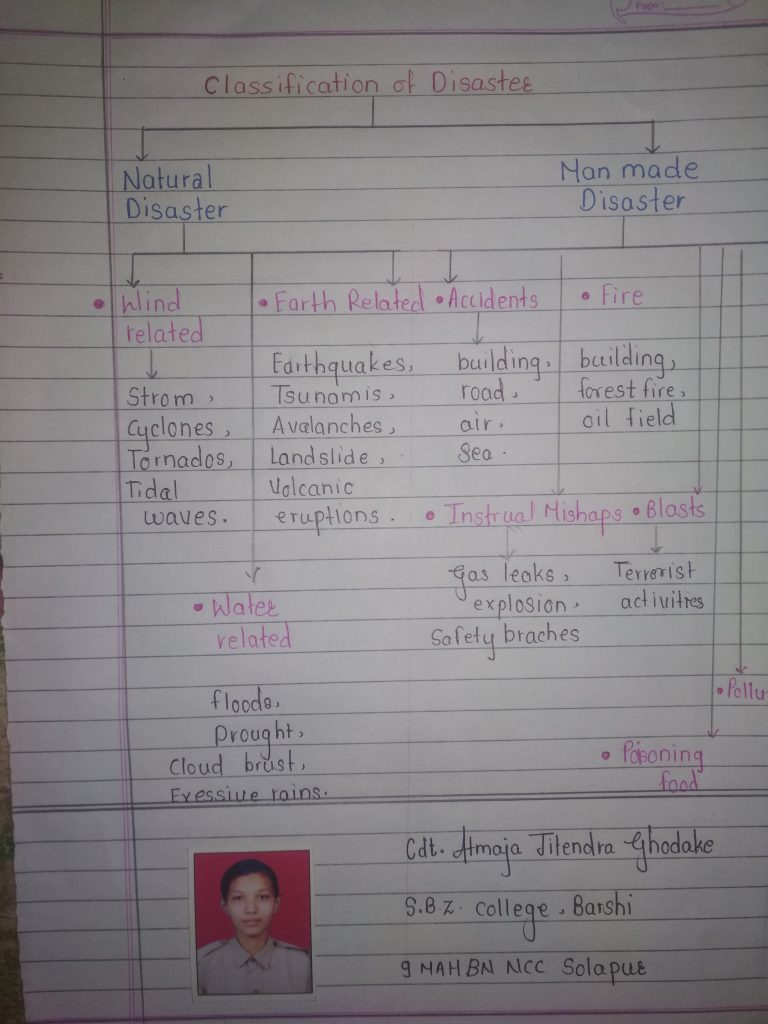 Page
Classification of Disaster
Natural
Disaster
Man made
Disaster
• Wind
related
Strom,
Cyclones,
Tornados,
Tidal
waves.
• Earth Related
Earthquakes,
Tsunamis,
Avalanches,
Landslide,
Volcanic
eruptions.
• Accidents
building,
road,
air,
Sea.
• Fire
building,
forest fire,
oil field
• Instrual Mishaps
Gas leaks,
explosion,
Safety braches
• Blasts
Terrorist
activities
• Water
related
floods,
Drought,
Cloud brust,
Exessive rains.
• Pollu
• Poisoning
food
Cdt. Atmaja Jitendra Ghodake
S.B.Z. College, Barshi
9 MAH BN NCC Solapur